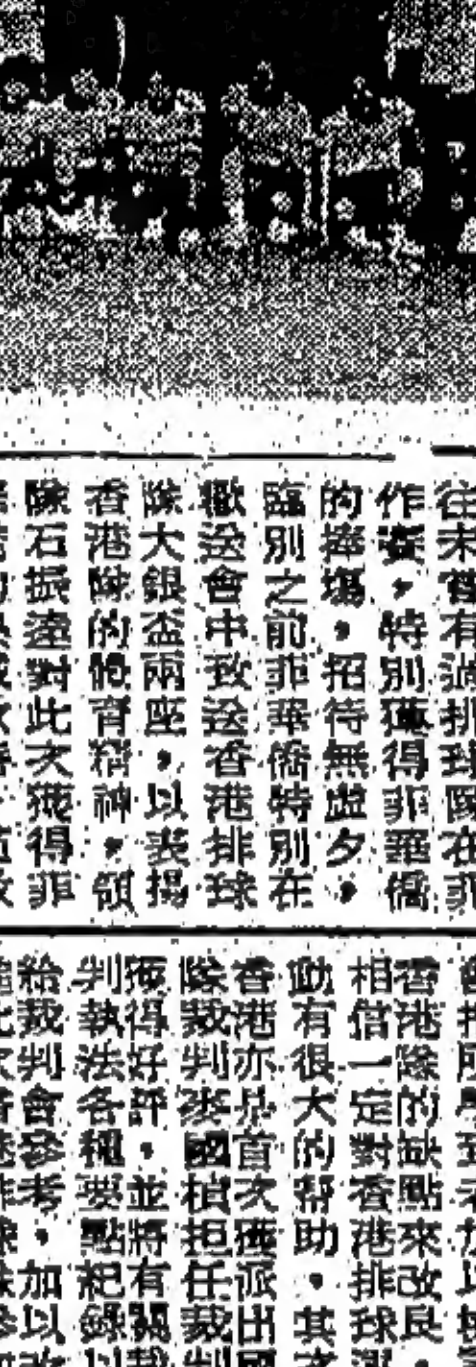 往未曾有過排球隊在菲
作賽，特別獲得菲華僑
的捧塲，招待無虛夕，
臨別之前菲華僑特別在
歡送會中致送香港排球
隊大銀盃兩座，以表揚
香港隊的體育精神，領
隊石振達對此次獲得菲
香港隊的缺點來改良
相信一定對香港排球
動有很大的帮助，其
香港亦是首次獲派出
隊裁判麥國楨担任裁判
獲得好評，並將有關裁
判執法各種要點紀錄
給裁判會參考，加以